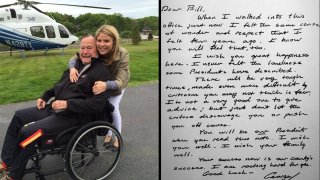 Dear Bill,
When I walked into this
office just now I felt the same sense
of wonder and respect that I
felt 4 years ago. I know
you will feel that, too.
I wish you great happiness
here. I never felt the loneliness
some Presidents have described.
There will be very tough
times, made even more difficult by
criticism you may not think is fair.
I'm not a very good one to give
advice; but just don't let the
critics discourage you or push
you off course.
You will be our President
when you read this note. I
wish you well. I wish your family
well.
Your success now is our country's
success. I am rooting hard for you.
Good Luck - George